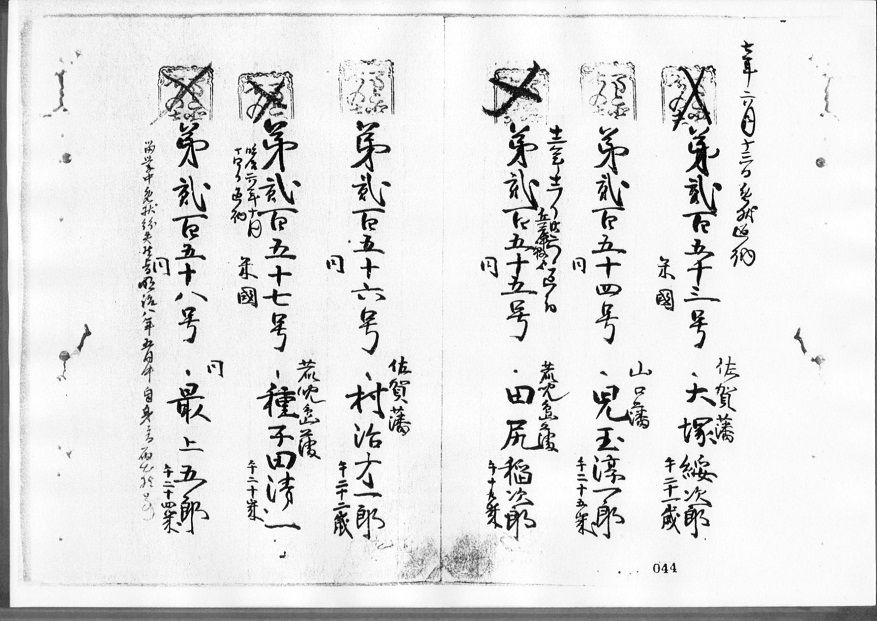 七年六月十三日免状返納
第貳百五十三号
米國
佐賀藩
大塚綏次郎
午二十一歳
第貳百五十四号
同
山口藩
児玉淳一郎
午二十五歳
第貳百五十五号
同
鹿児島藩
田尻稲次郎
午十九歳
第貳百五十六号
同
佐賀藩
村治才一郎
午二十二歳
第貳百五十七号
明治六年十月
返納
米國
鹿児島藩
種子田清一
午二十歳
第貳百五十八号
同
同
最上五郎
午二十四歳
留学中免状紛失
明治八年五月中自身
044